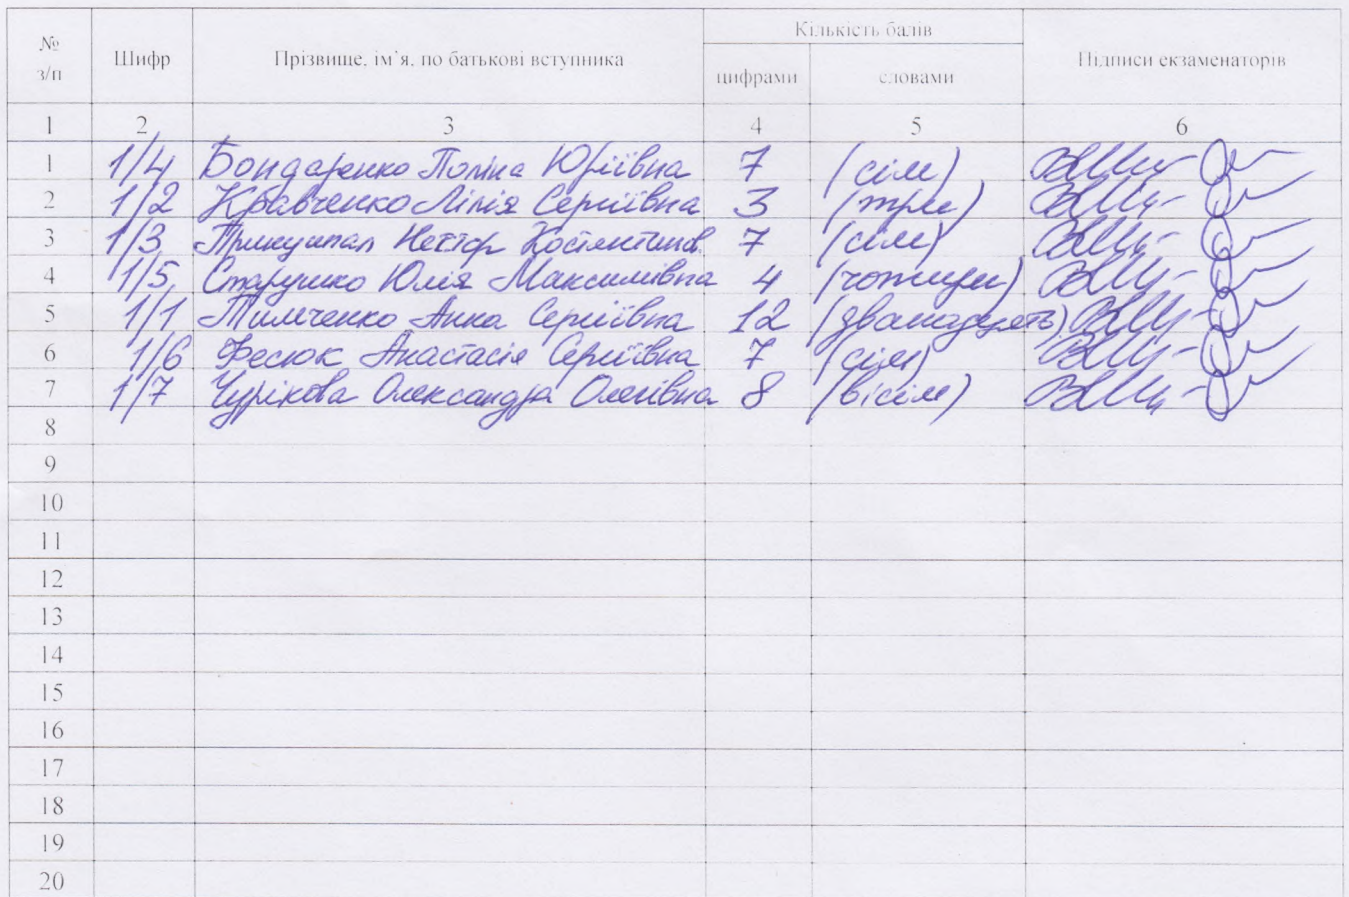 № з/п Шифр Прізвище, ім’я, по батькові вступника Кількість балів Підписи екзаменаторів
цифрами словами
1 2 3 4 5 6
1 1/4 Бондаренко Поліна Юріївна 7 (сім)
2 1/2 Кравченко Лілія Сергіївна 3 (три)
3 1/3 Нестор Костянтинов. 7 (сім)
4 1/5 Старушко Юлія Максимівна 4 (чотири)
5 1/1 Тимченко Анна Сергіївна 12 (дванадцять)
6 1/6 Фесюк Анастасія Сергіївна 7 (сім)
7 1/7 Чурікова Олександра Олегівна 8 (вісім)
8
9
10
11
12
13
14
15
16
17
18
19
20